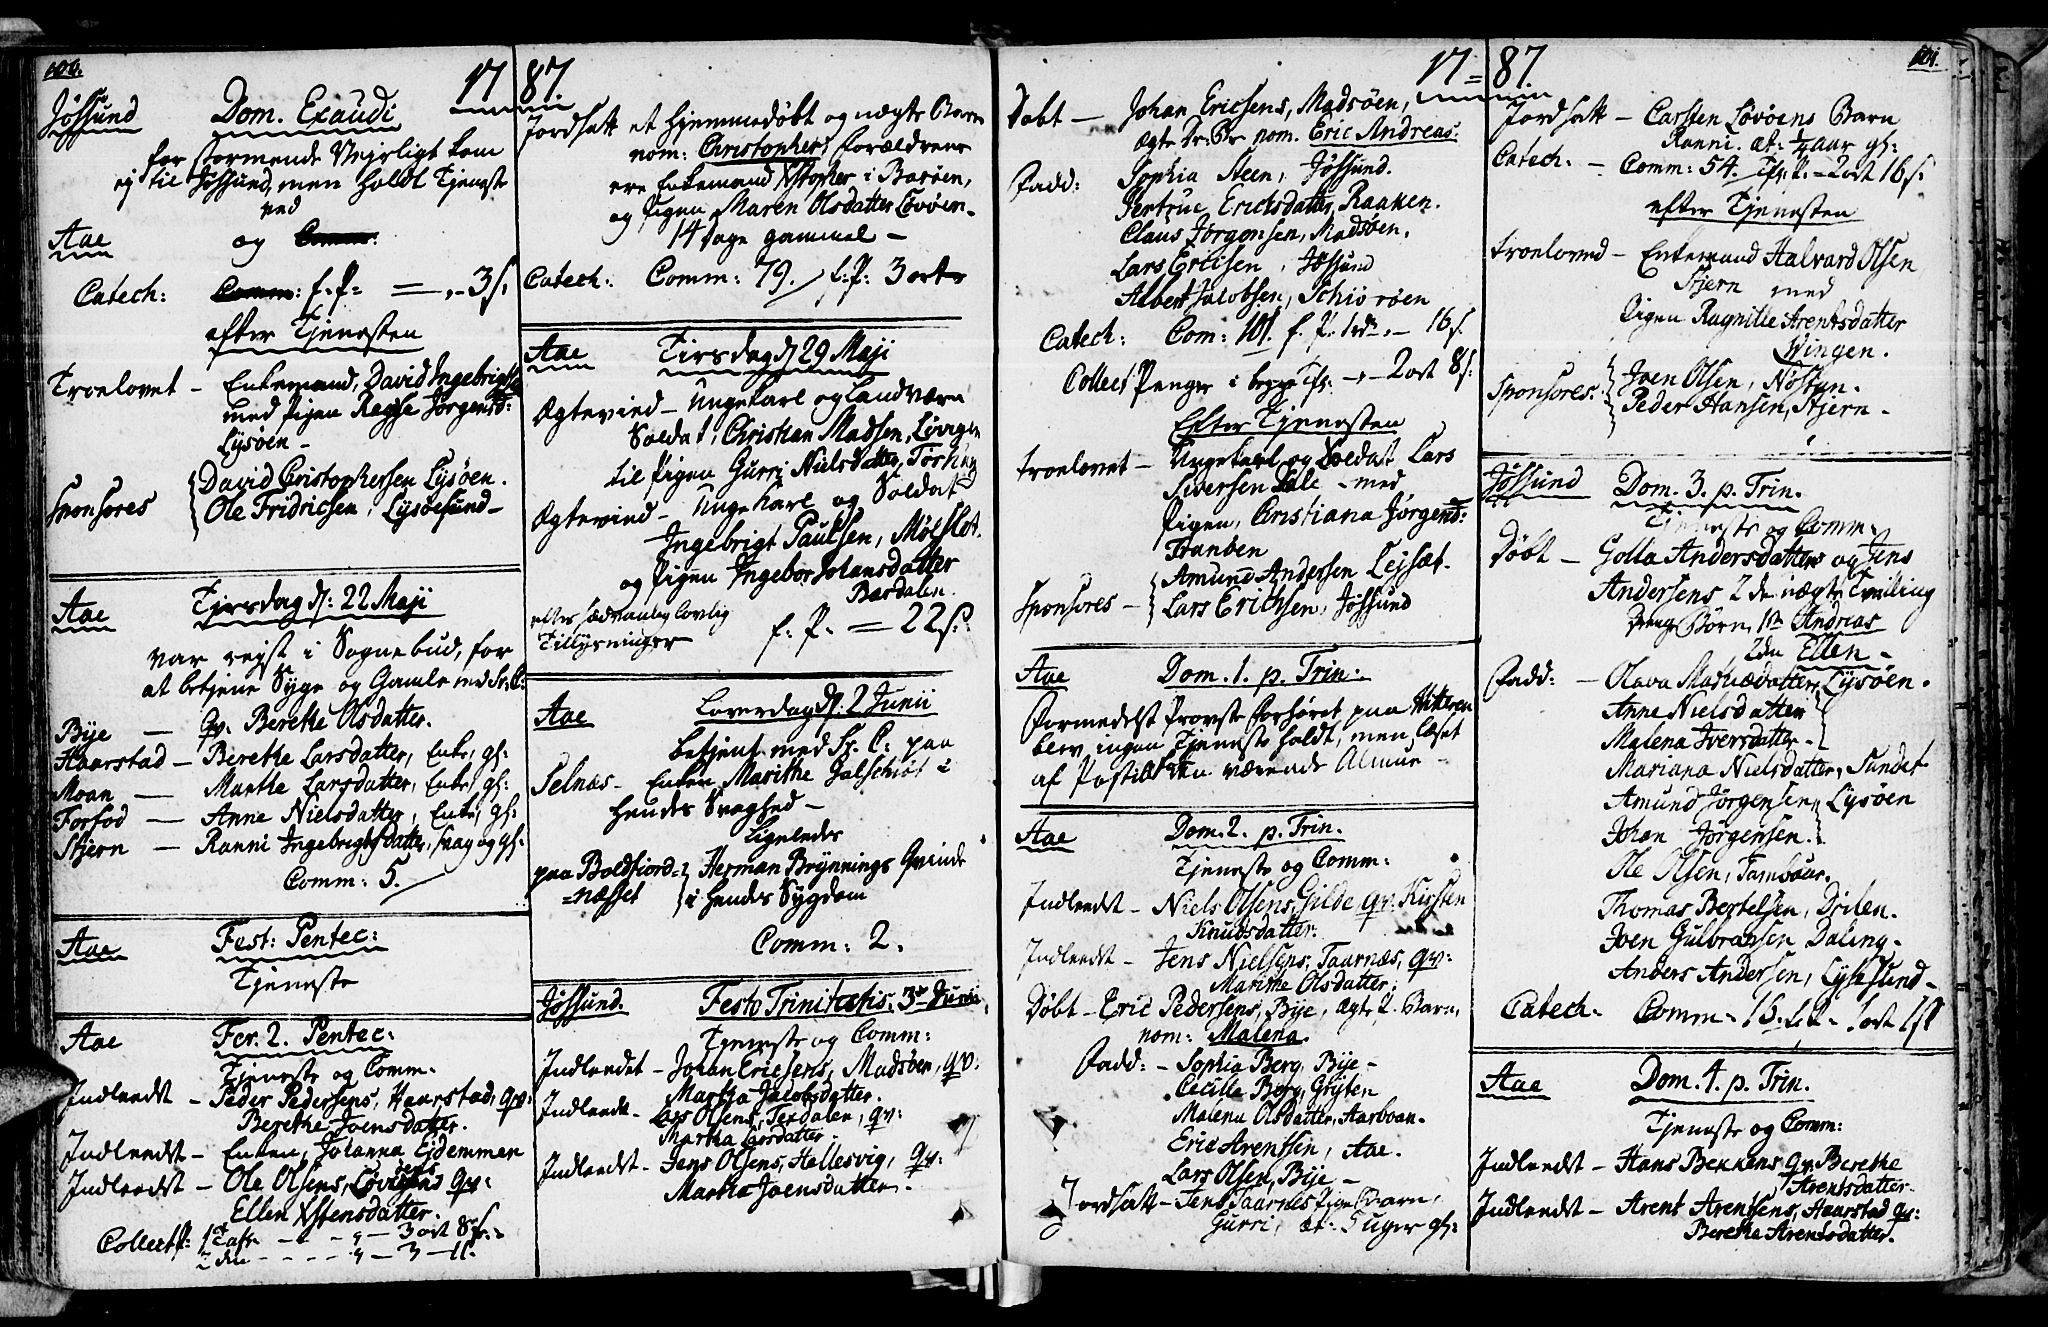 100.
17 87.
Jøssund Dom. Exaudi
for stormende Vejrligt kom
ej til Jøssund, men holdt Tjeneste
ved
Aae og Comm:
Catech: Comm: f. P. = ,, 3 s.
efter Tjenesten
Troelovet – Enkemand, David Ingebrigts.
med Pigen Regse Jørgensd:
Lysøen –
Sponsores David Cristophersen Lysøen.
Ole Fridricsen, Lysøesund –
Aae Tjirsdag d: 22 Maji
var rejst i Sognebud, for
at betjene Syge og Gamle med Sr: C:
Bije – Qv. Berethe Olsdatter.
Haarstad – Berethe Larsdatter, Enke, gl:
Moan – Marthe Larsdatter, Enke, gl:
Forfod – Anne Nielsdatter, Enke, gl:
Stjern – Ranni Ingebrigtsdatter, svag og gl:
Comm: 5.
Aae Fest: Pentec:
Tjeneste
Aae Fer. 2. Pentec:
Tjeneste og Comm.
Indleedt – Peder Pedersens, Haarstad, Qv:
Berethe Joensdatter.
Indleedt – Enken, Johanna Ejdemmen
Indleedt – Ole Olsens, Qv:
Ellen Xstensdatter.
Collect P: 1 Tafr – 3 ort 8 s.
2 den – 3 – 11.
Jordsatt et hjemmedøbt og uægte Barn
nom: Christopher; Forældrene
ere Enkemand Xstopher i Barøen,
og Pigen Maren Olsdatter Løvøen.
14 dage gammel –
Catech: Comm: 79. f. P: 3 ort
Aae Tirsdag d 29 Maji
Ægtevied – Ungekarl og Landværn
Soldat, Christian Madsen, Løvigen
til Pigen Gurri Nielsdatter,
Ægtevied – Ungekarl og Soldat
Ingebrigt Paulsen, Mølslet.
og Pigen Ingebor Johansdatter
Bardalen.
efter sædvanlig lovlig
Tillysninger f. P. = 22 s.
Aae Løverdag d: 2 Junii
betjent med Sr. C: paa
Selnæs – Enken Marithe Galschiøt i
hendes Svaghed –
Ligeledes
paa Boldfiord= Herman Brynnings Qvinde
=næsset i hendes Sygdom
Comm: 2.
Jøssund. Festo Trinitatis. 3die Junii,
Tjeneste og Comm:
Indleedet – Johan Ericsens, Madsøen, qv:
Martha Jacobsdatter.
Indleedt – Lars Olsens, Terdalen, qv:
Martha Larsdatter.
Indleedt – Jens Olsens, Hellesvig, Qv:
Martha Joensdatter.
17= 87.
101.
Døbt – Johan Ericsens, Madsøen,
ægte nom. Eric Andreas.
Fadd: Sophia Steen, Jøssund.
Jertrue Ericksdatter, Raaken.
Claus Jørgensen, Madsøen.
Lars Ericsen, Jøssund
Albert Jacobsen, Schiørøen
Catech: Com: 101. f. P. 1 rd. – 16 s.
Collect: Penger i begge Tfl: – 2 ort 8 s.
Efter Tjenesten
Troelovet – Ungekarl og Soldat Lars
Siversen – med
Pigen, Cristiana Jørgensd:
Tranøen
Sponsores – Amund Andersen Lejsæt.
Lars Erichsen, Jøssund
Aae Dom. 1. p. Trin:
Formedelst Provste Forhøret paa Hitteren
blev ingen Tjeneste holdt, men læset
af Postillen værende Almue –
Aae Dom. 2. p. Trin.
Tjeneste og Comm:
Indleedt – Niels Olsens, Gilde qv: Kirsten
Knudsdatter:
Indleedt – Jens Nielsens, Taarnæs, qv:
Marithe Olsdatter:
Døbt – Eric Pedersens, Bije, ægte P. Barn,
nom: Malena.
Fadd: – Sophia Berg, Bije –
Cecille Berg, Gryten
Malena Olsdatter, Aarboan.
Eric Arentsen, Aae.
Lars Olsen, Bije –
Jordsatt – Jens Taarnes Pige Barn,
Gurri, æt: 5 uger gl:
Jordsatt – Carsten Løvøens Barn
Ranni. æt: 1/4 aar gl:
Catech: – Comm: 54. Tfl. P. – 2 ort 16 s.
efter Tjenesten
Troeloved – Enkemand Halvard Olsen
Stjern med
Pigen Ragnille Arentsdatter
Wingen.
Sponsores: Joen Olsen, Nøstyn.
Peder Hansen, Stjern –
Jøssund Dom. 3. p. Trin.
Tjeneste og Comm:
Døbt – Golla Andersdatters og Jens
Andersens 2 de uægte Tvilling
Børn, 1te Andreas
2den Ellen –
Fadd: – Olava Mathiædatter, Lysøen.
Anne Nielsdatter
Malena Iversdatter –
Mariana Nielsdatter, Sundet
Amund Jørgensen Lysøen
Johan Jørgensen.
Ole Olsen, Tambour.
Thomas Bertelsen, Drilen.
Joen Gulbransen Daling.
Anders Andersen, Lysesund –
Catech. Comm – 16. f. P. – 1 ort 1 s
Aae Dom. 4. p. Trin.
Tjeneste og Comm:
Indleedt – Hans Bekkens Qv. Berethe
Arentsdatter.
Indleedt – Arent Arentsens, Haarstad qv:
Berethe Arentsdatter.